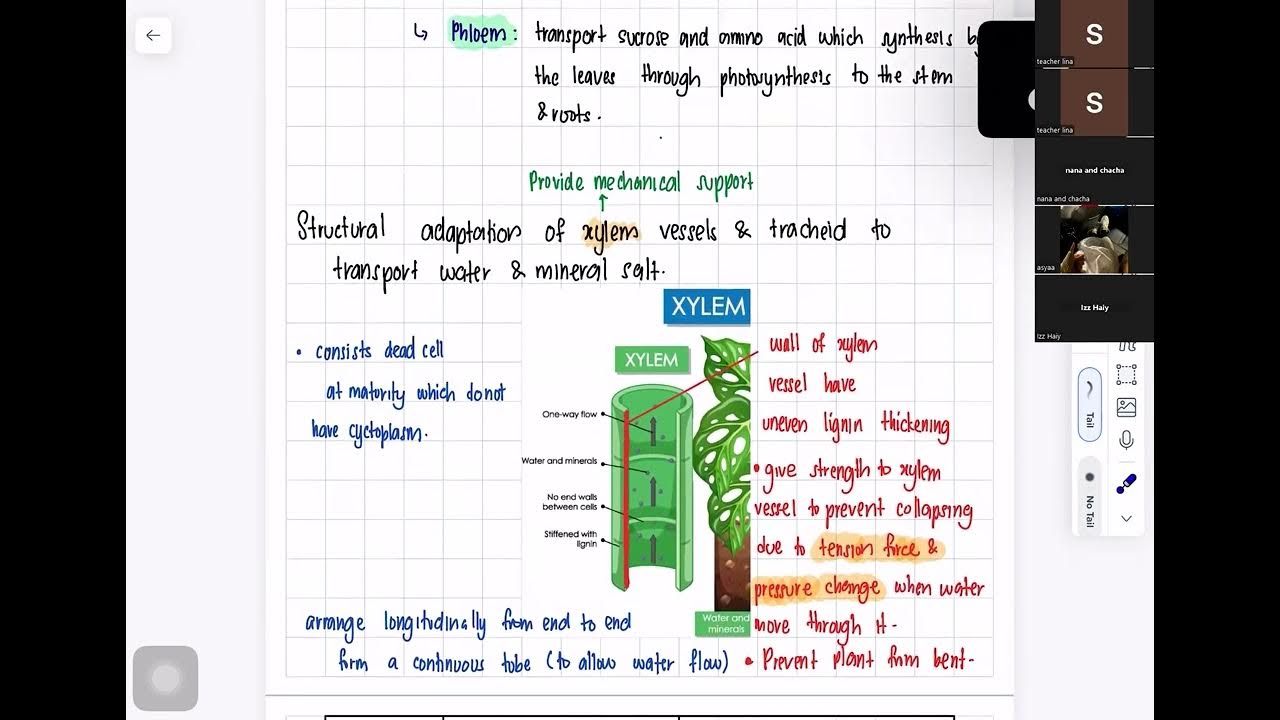 ↳ Phloem : transport sucrose and amino acid which synthesis b
the leaves through photosynthesis to the stem
& roots.
Provide mechanical support
↑
Structural adaptation of xylem vessels & tracheid to
transport water & mineral salt.
XYLEM
XYLEM
One-way flow
Water and minerals
No end walls
between cells
Stiffened with
lignin
Water and
minerals
• consists dead cell
at maturity which do not
have cyctoplasm.
wall of xylem
vessel have
uneven lignin thickening
• give strength to xylem
vessel to prevent collapsing
due to tension force &
pressure change when water
move through it.
• Prevent plant from bent.
arrange longitudinally from end to end
form a continuous tube (to allow water flow)
S
teacher lina
S
teacher lina
nana and chacha
nana and chacha
asyaa
Izz Haiy
Izz Haiy
Tail
No Tail